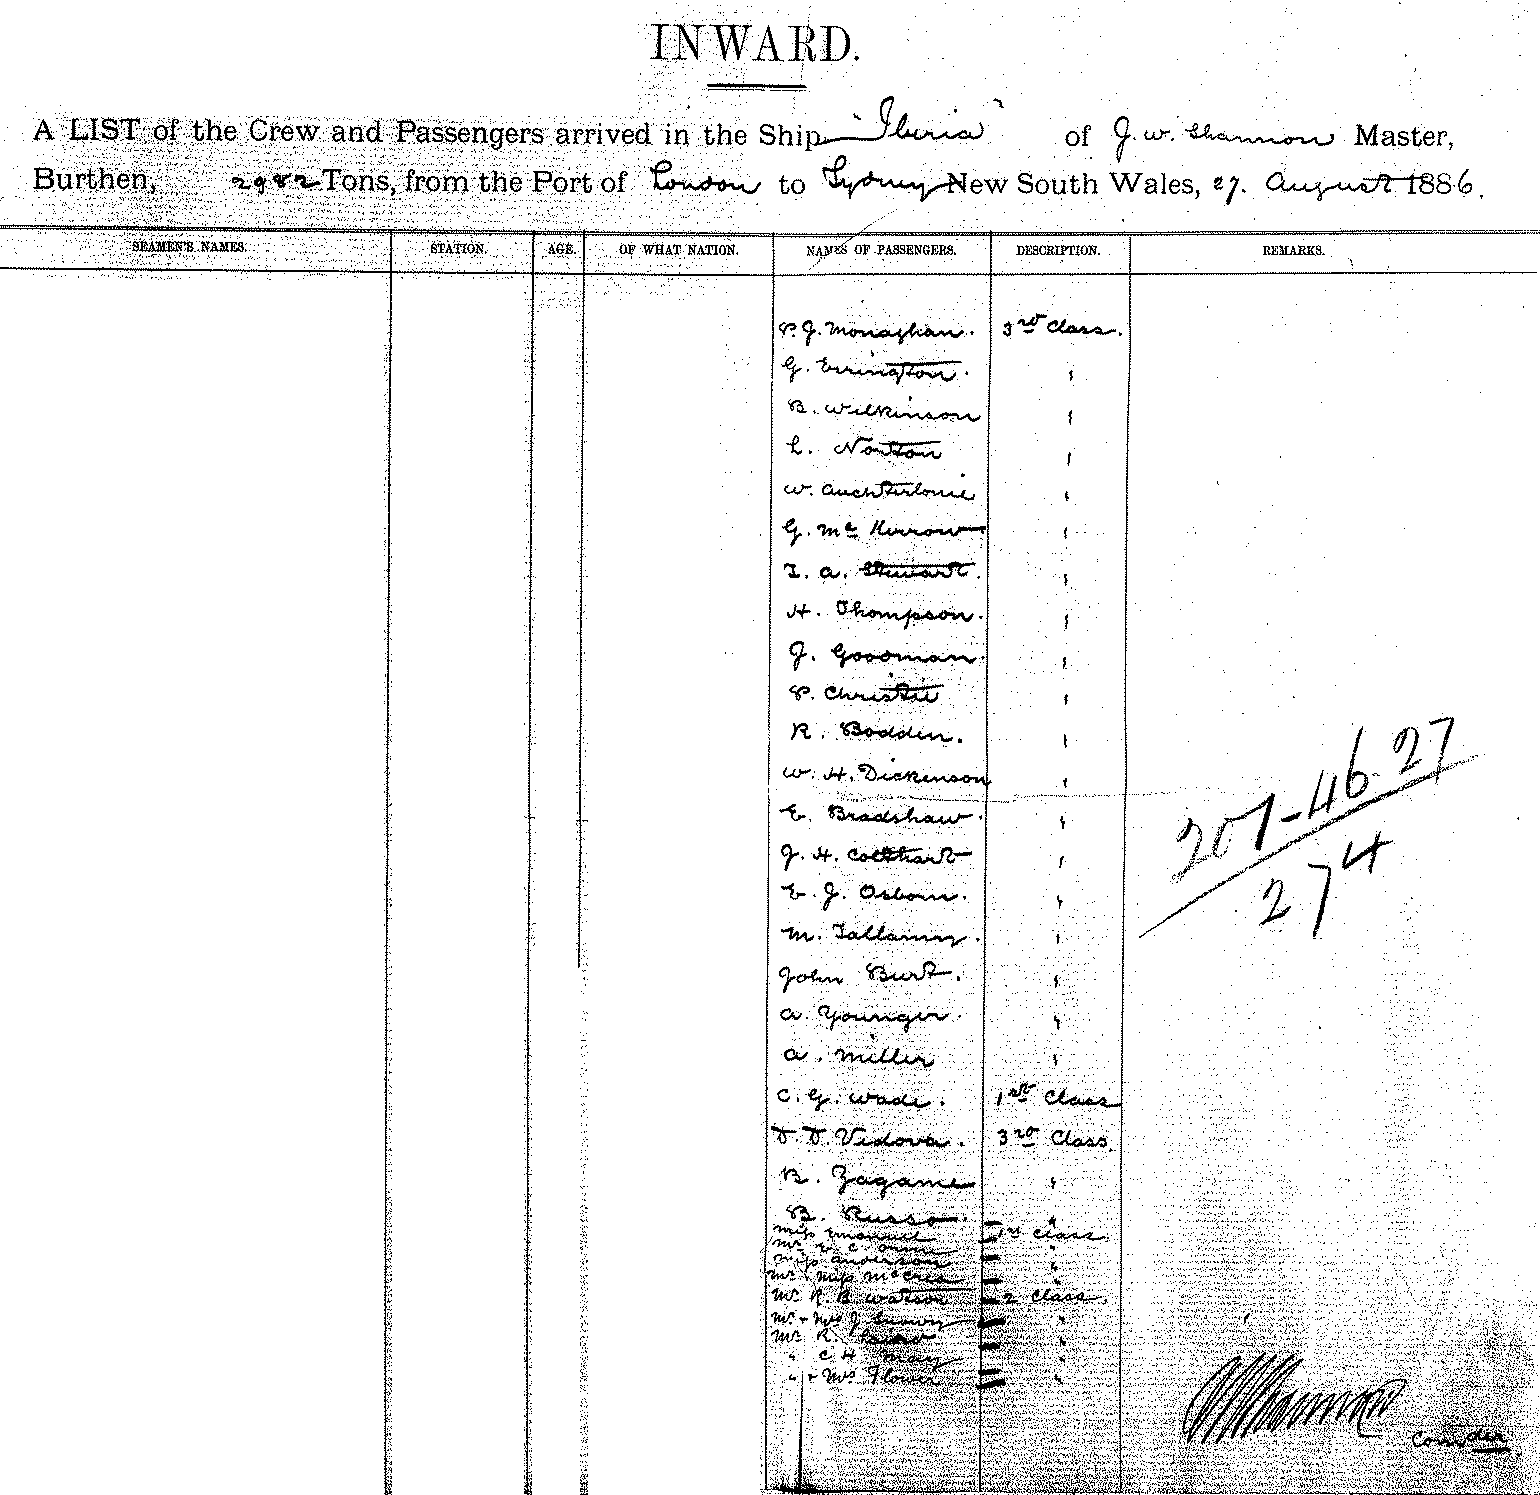 INWARD.
A LIST of the Crew and Passengers arrived in the Ship "Iberia" of J. W. Shannon Master,
Burthen, 2982 Tons, from the Port of London to Sydney New South Wales, 27. August 1886.
SEAMEN'S NAMES. STATION. AGE. OF WHAT NATION. NAMES OF PASSENGERS. DESCRIPTION. REMARKS.
P. J. Monaghan. 3rd Class.
G. Errington. "
B. Wilkinson "
L. Norton "
W. Auchterlonie "
G. Mc Kerrow "
I. A. Stewart. "
H. Thompson. "
J. Goodman. "
P. Christie "
R. Bodden. "
W. H. Dickinson "
E. Bradshaw. "
J. H. Lockhart "
E. J. Osborn. "
M. Tallamy. "
John Burt. "
A. Younger. "
A. Miller "
C. G. Wade. 1st Class
D. D. Vedova. 3rd Class.
B. Zagame "
B. Russo. "
Miss Emanuel 1st Class
Mr. E. C. "
Miss Anderson "
Mr. & Miss McCrea "
Mr. R B Watson 2 Class.
Mr. & Mrs J "
Mr. R. "
" C H May "
" & Mrs Flower "
207-46-27
274
J W Shannon
Comder